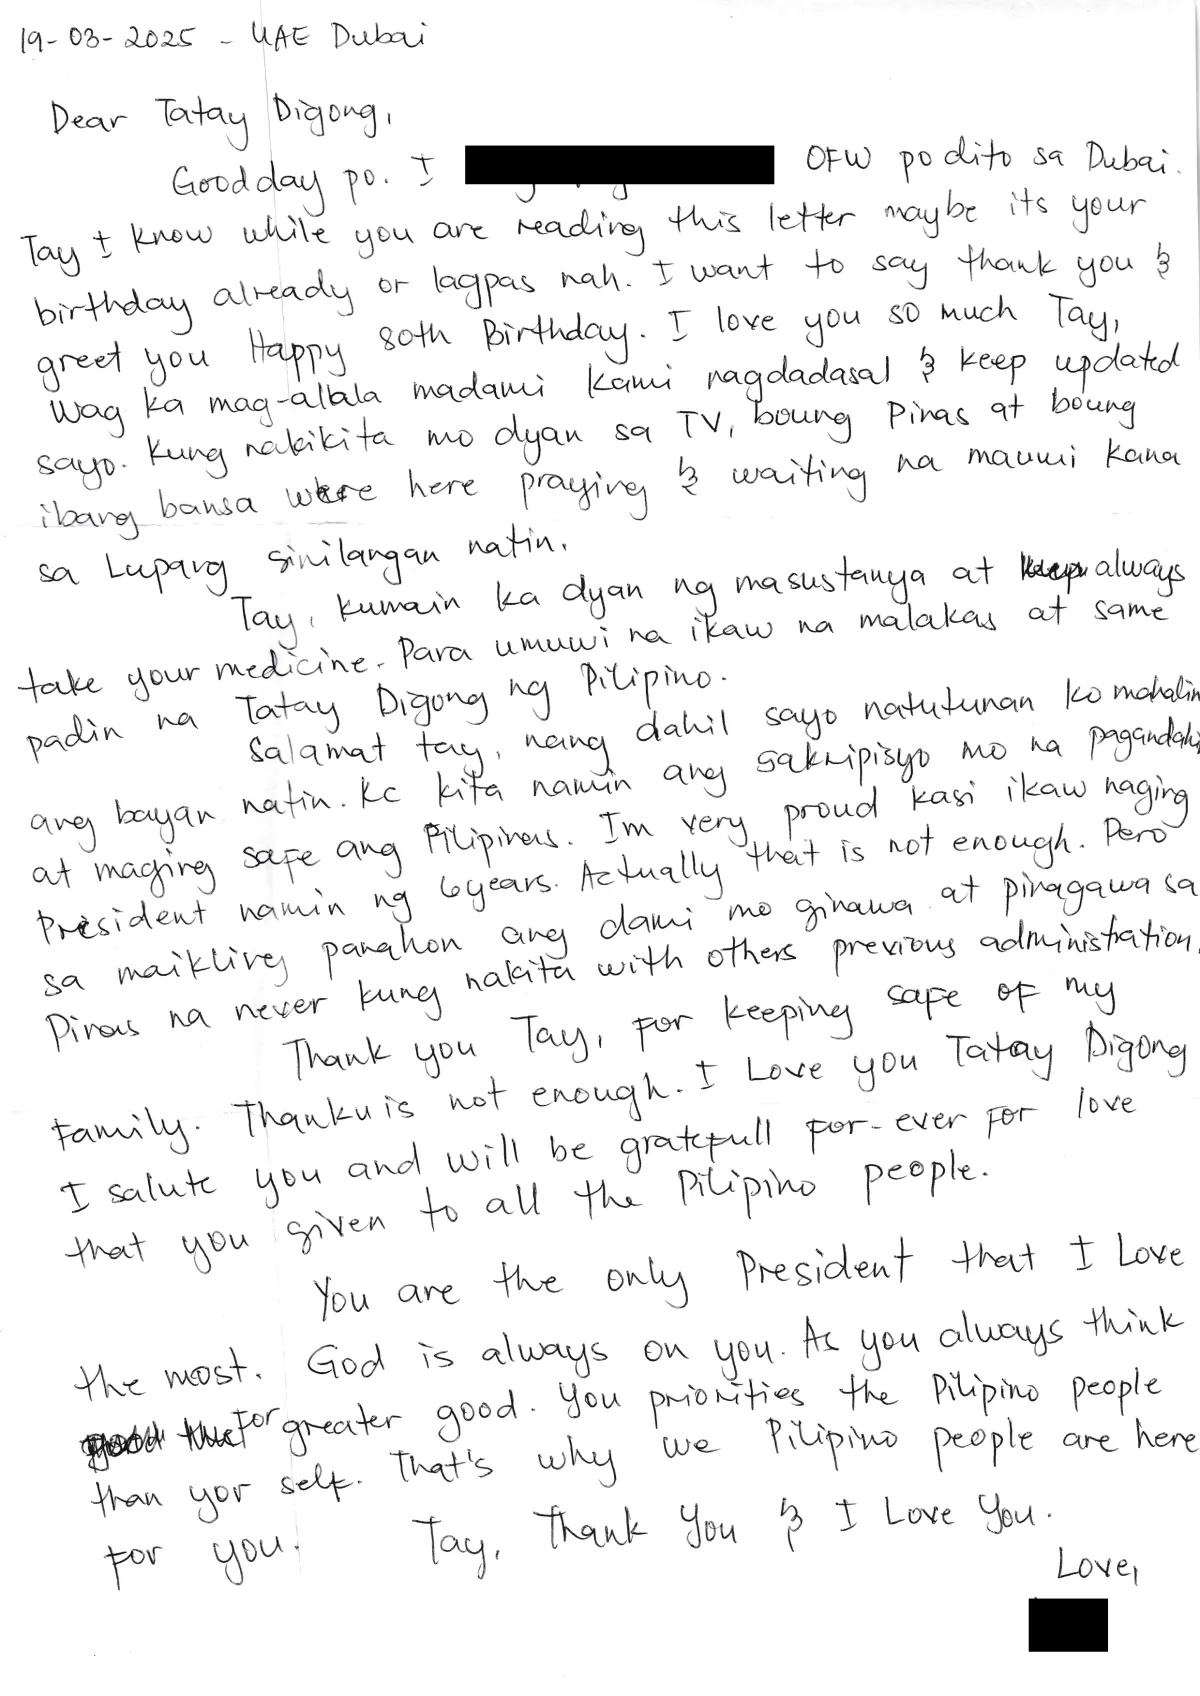 19-03-2025 - UAE Dubai
Dear Tatay Digong,
Good day po. I OFW po dito sa Dubai.
Tay I know while you are reading this letter maybe its your
birthday already or lagpas nah. I want to say thank you &
greet you Happy 80th Birthday. I love you so much Tay,
Wag ka mag-allala madami kami nagdadasal & keep updated
sayo. Kung nakikita mo dyan sa TV, boung Pinas at boung
ibang bansa were here praying & waiting na mauwi kana
sa Lupang sinilangan natin.
Tay, kumain ka dyan ng masustanya at always
take your medicine. Para umuwi na ikaw na malakas at same
padin na Tatay Digong ng Pilipino.
Salamat tay, nang dahil sayo natutunan ko mahalin
ang bayan natin. Kc kita namin ang sakripisyo mo na pagandahi
at maging safe ang Pilipinas. Im very proud kasi ikaw naging
President namin ng 6years. Actually that is not enough. Pero
sa maikling panahon ang dami mo ginawa at pinagawa sa
Pinas na never kung nakita with others previous administration.
Thank you Tay, for keeping safe of my
Family. Thanku is not enough. I Love you Tatay Digong
I salute you and will be gratefull for-ever for love
that you given to all the Pilipino people.
You are the only President that I Love
the most. God is always on you. As you always think
for greater good. You priorities the Pilipino people
than yor self. That's why we Pilipino people are here
for you. Tay, Thank You & I Love You.
Love,